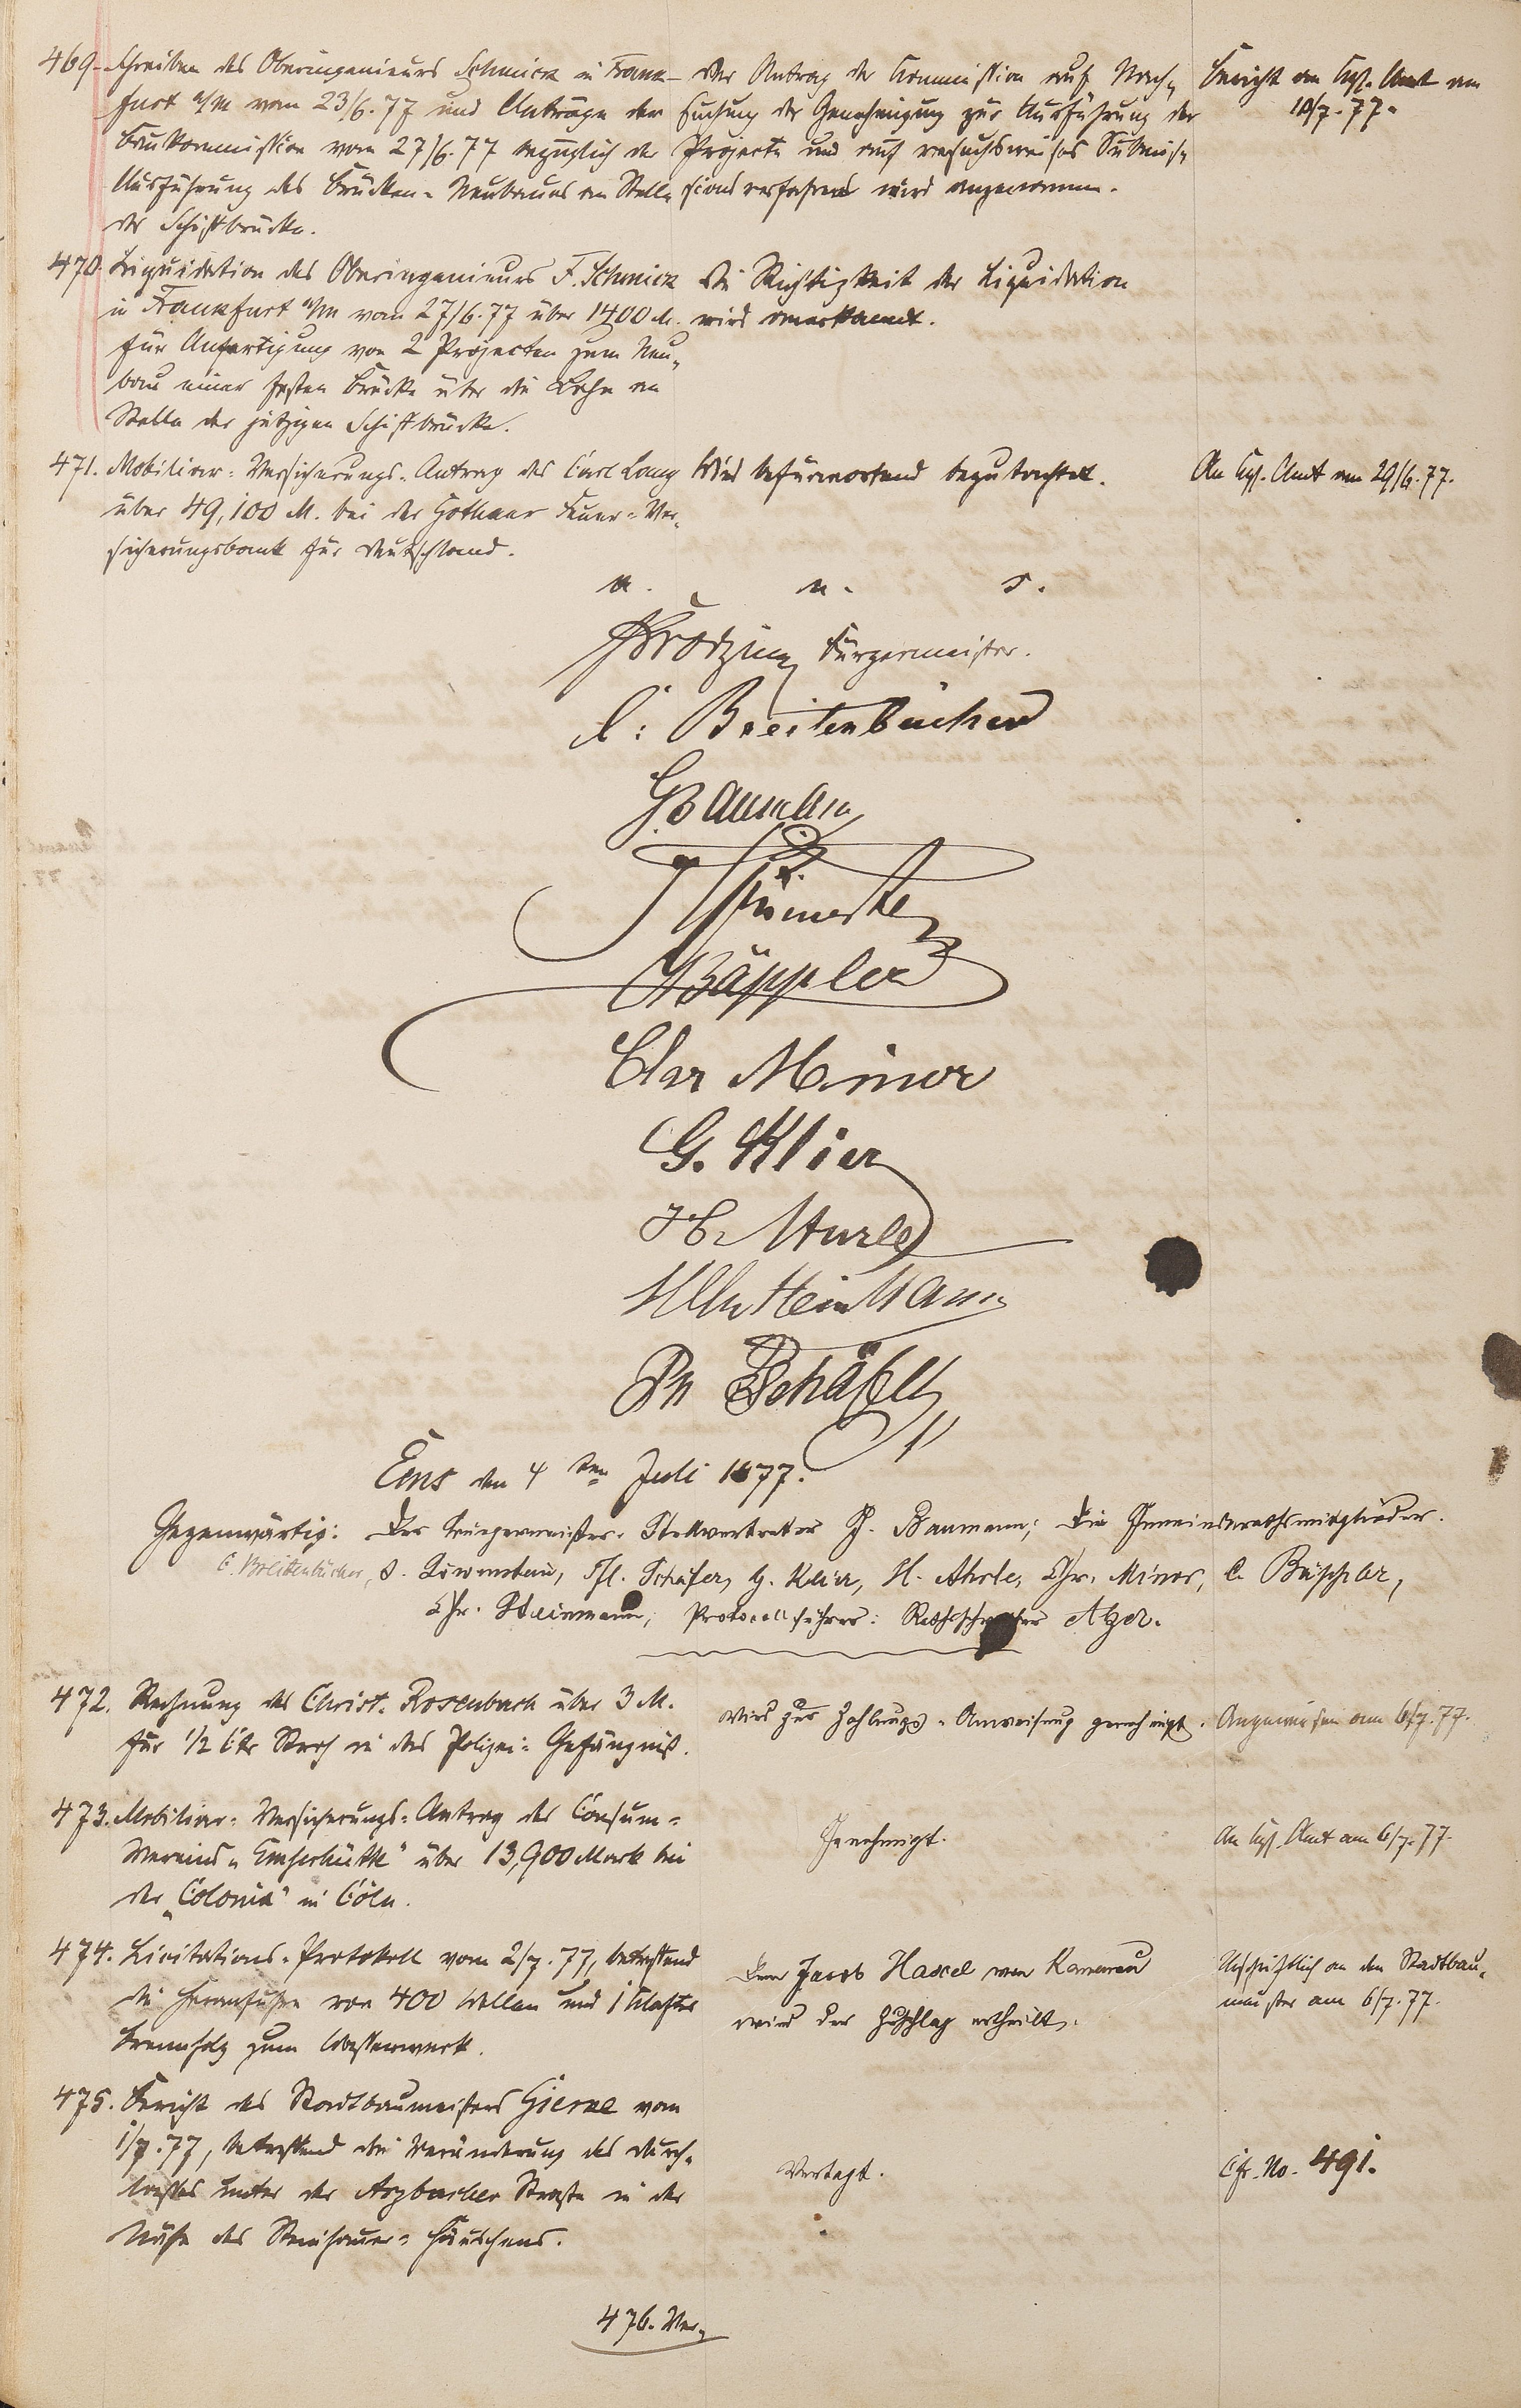 469. Schreiben des Oberingenieurs Schmick in Frank-
furt a/M vom 23/6.77 und Anträge der
Baukommission vom 27/6.77 bezüglich der
Ausführung des Brücken-Neubaues an Stelle
der Schiffbrücke.
Der Antrag der Kommission auf Nach-
suchung der Genehmigung zur Ausführung der
Projecte und auf versuchsweises Submis-
sionsverfahren wird angenommen.
Bericht an Kgl. Amt am
10/7.77.
470. Liquidation des Oberingenieurs F. Schmick
in Frankfurt a/M vom 27/6.77 über 1400 M.
für Anfertigung von 2 Projecten zum Neu-
bau einer festen Brücke über die Lahn an
Stelle der jetzigen Schiffbrücke.
Die Richtigkeit der Liquidation
wird anerkannt.
471. Mobiliar-Versicherungs-Antrag des Carl Lang
über 49,100 M. bei der Gothaer Feuer-Ver-
sicherungsbank für Deutschland.
Wird befürwortend begutachtet.
An Kgl. Amt am 29/6.77.
Bürgermeister.
C: Breitenbücher
G Baumann
Bäppler
Chr Minor
G. Klier
Chr Steinmann
Ph Schäfer
Ems den 4ten Juli 1877.
Gegenwärtig: Der Bürgermeister-Stellvertreter G. Baumann; Die Gemeinderathsmitglieder.
C. Breitenbücher, Ph. Schäfer, G. Klier, Chr. Minor, C. Bäppler,
Chr. Steinmann; Protocollführer: Rathsschreiber
472. Rechnung des Christ. Rosenbach über 3 M.
für 1/2 Ctr Stroh in das Polizei-Gefängniß.
Wird zur Zahlungs-Anweisung genehmigt.
Angewiesen am 6/7.77.
473. Mobiliar-Versicherungs-Antrag des Consum-
Vereins "Emserhütte" über 13,900 Mark bei
der "Colonia" in Cöln.
Genehmigt.
An Kgl. Amt am 6/7.77.
474. Licitations-Protokoll vom 2/7.77, betreffend
die Heranfuhr von 400 Wellen und 1 Klafter
Brennholz zum Wasserwerk.
Dem Jacob von
wird der Zuschlag ertheilt.
Abschriftlich an den Stadtbau-
meister am 6/7.77.
475. Bericht des Stadtbaumeisters vom
1/7.77, betreffend die Veränderung des Durch-
lasses unter der Arzbacher Straße in der
Nähe des Steinhauer-Häuschens.
Vertagt.
Cfr. No. 491.
476. Ver-